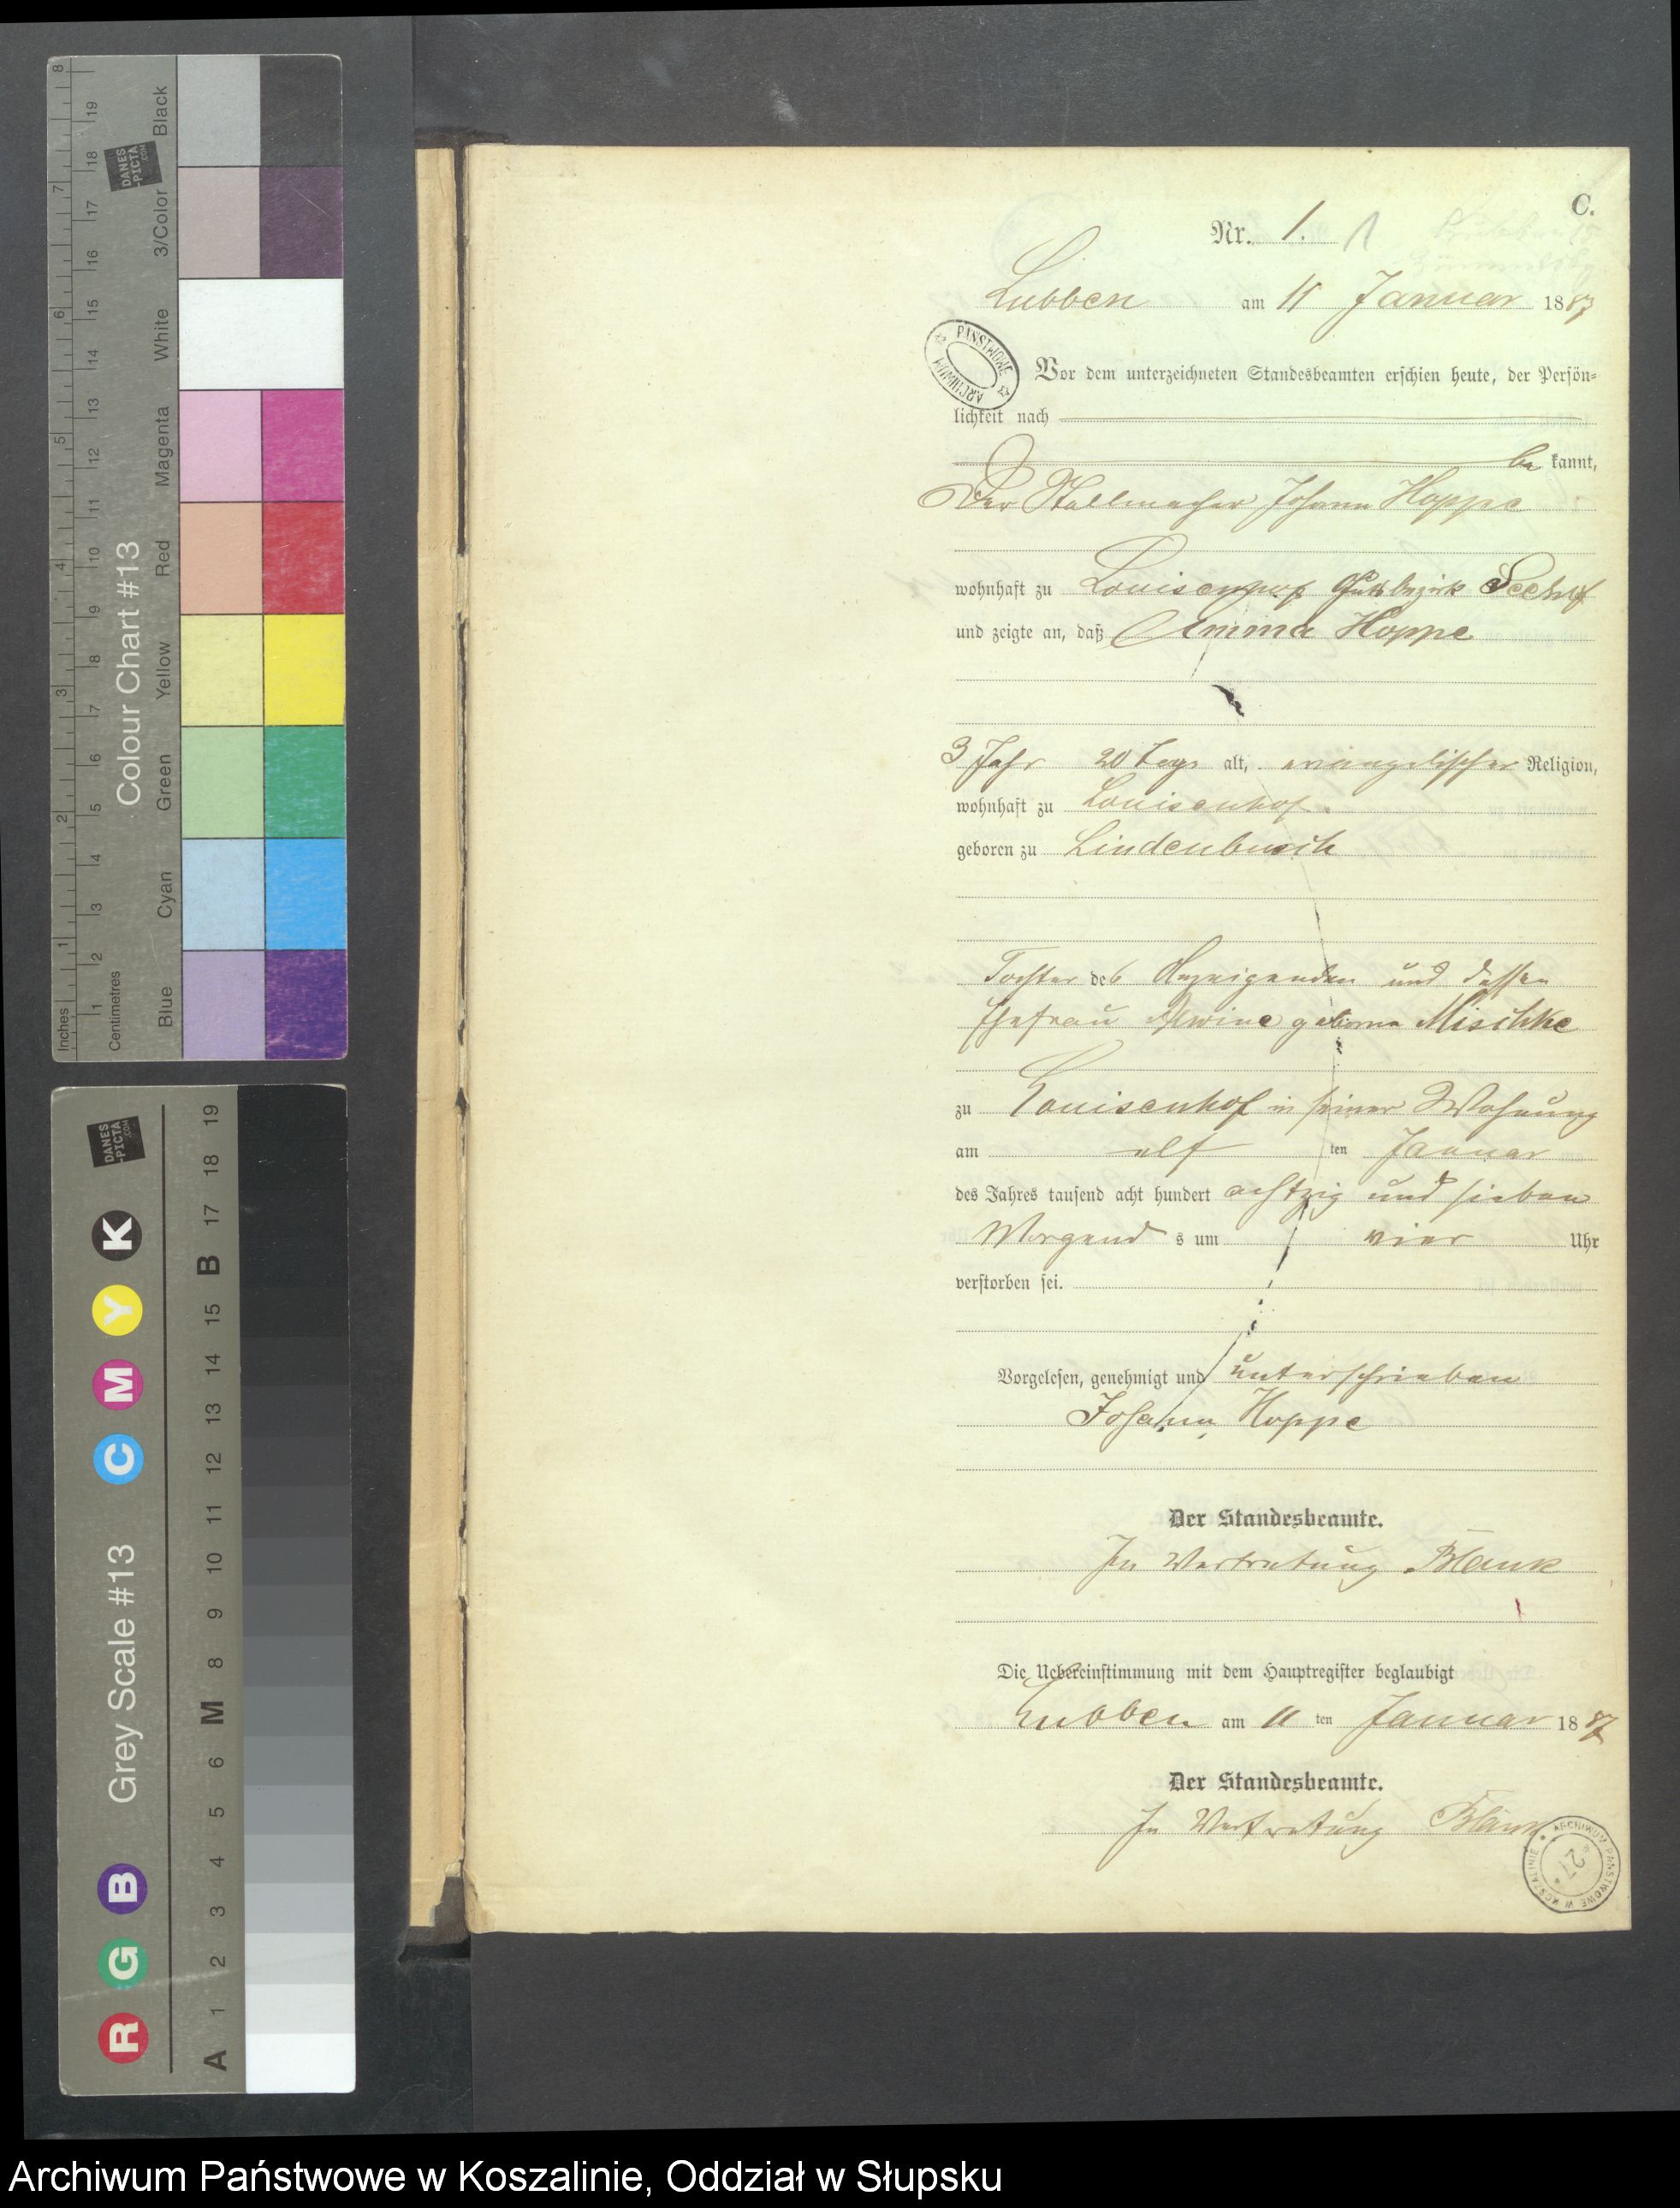 C.
Nr. 1. 1
Lubben am 11 Januar 1887
PANSTWOWE ARCHIWUM
Vor dem unterzeichneten Standesbeamten erschien heute, der Persön=
lichkeit nach
be kannt,
Der Stellmacher Johann Hoppe
wohnhaft zu Louisenhof Gutsbezirk Seehof
und zeigte an, daß Emma Hoppe
3 Jahr 20 Tage alt, evangelischer Religion,
wohnhaft zu Louisenhof.
geboren zu Lindenbusch
Tochter des Anzeigenden und dessen
Ehefrau Alwine geborne Mischke
zu Louisenhof in seiner Wohnung
am elf ten Januar
des Jahres tausend acht hundert achtzig und sieben
Morgend s um vier Uhr
verstorben sei.
Vorgelesen, genehmigt und unterschrieben
Johann Hoppe
Der Standesbeamte.
In Vertretung Blank
Die Uebereinstimmung mit dem Hauptregister beglaubigt
Lubben am 11 ten Januar 1887
Der Standesbeamte.
In Vertretung Blank
ARCHIWUM PAŃSTWOWE W KOSZALINIE
27
Colour Chart #13
Blue Cyan Green Yellow Red Magenta White 3/Color Black
Inches 1 2 3 4 5 6 7 8
Centimetres 1 2 3 4 5 6 7 8 9 10 11 12 13 14 15 16 17 18 19
DANES
-PICTA
.COM
Grey Scale #13
R G B C M Y K
A 1 2 3 4 5 6 M 8 9 10 11 12 13 14 15 B 17 18 19
DANES
-PICTA
.COM
Archiwum Państwowe w Koszalinie, Oddział w Słupsku